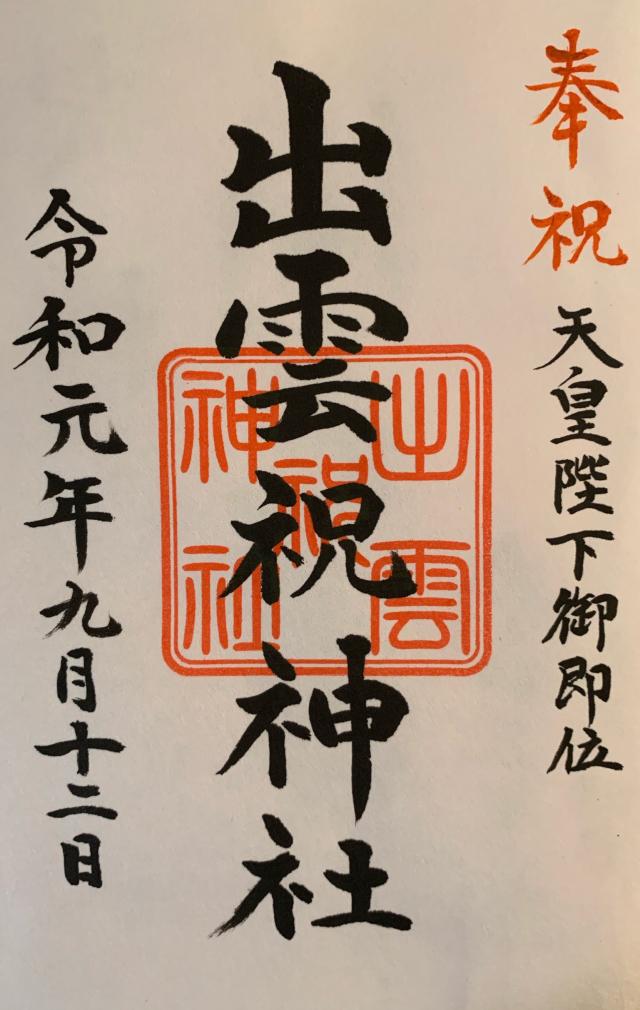 奉祝
天皇陛下御即位
出雲祝神社
出雲
祝
神社
令和元年九月十二日